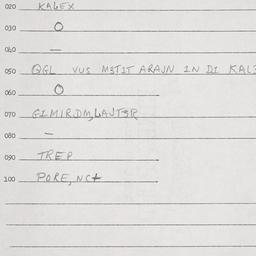 020 KALEX
030 O
040 —
050 QGL VUS METIT ARAJN IN DI KALE
060 O
070 GIMIRDM,LAUTER
080 —
090 TREP
100 PORE, NCT